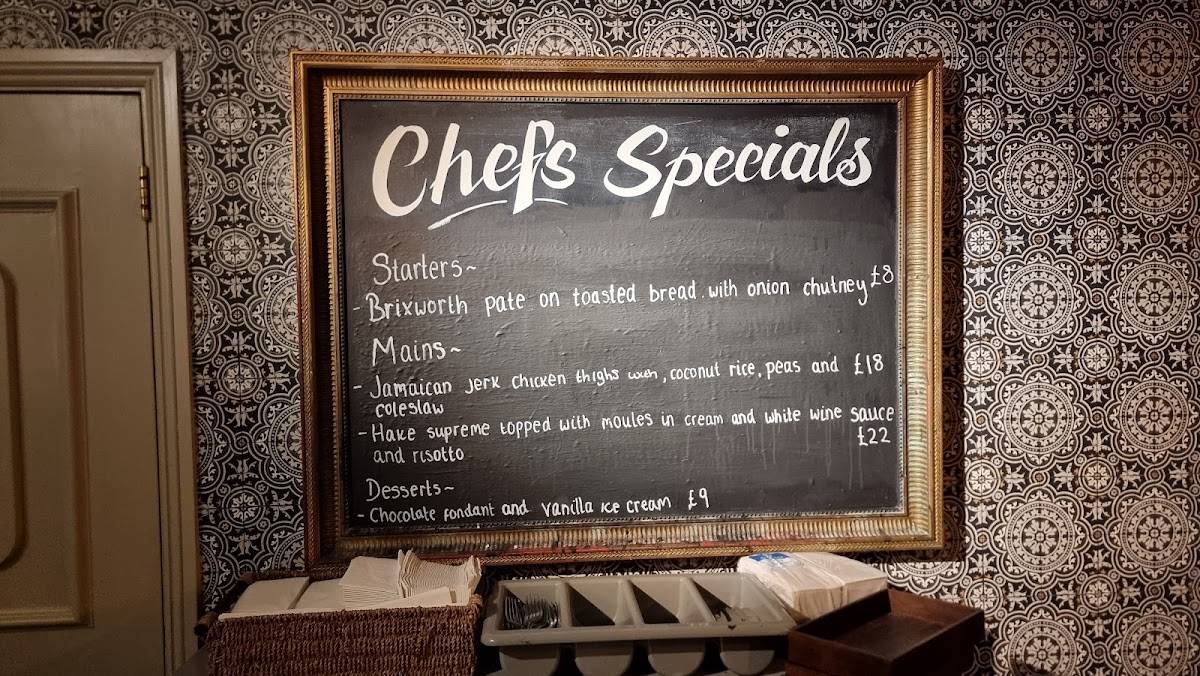 Chefs Specials
Starters~
- Brixworth pate on toasted bread with onion chutney £8
Mains~
- Jamaican jerk chicken thighs with, coconut rice, peas and £18
coleslaw
- Hake supreme topped with moules in cream and white wine sauce
£22
and risotto
Desserts~
- Chocolate fondant and vanilla ice cream £9